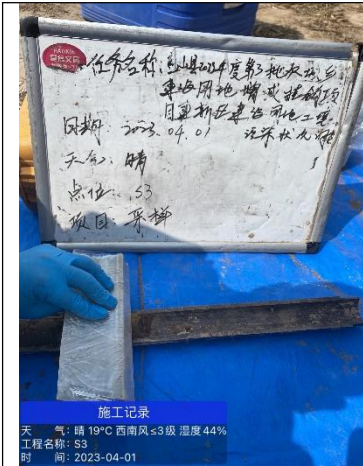 任务名称:
度第3批次城乡
建设用地增减挂钩项
目建新区建设用地工程
日期: 2023.04.01
天气: 晴
点位: S3
项目: 采样
施工记录
天 气: 晴 19°C 西南风≤3级 湿度44%
工程名称: S3
时 间: 2023-04-01